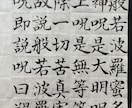 波羅蜜
神呪是大明
上呪是無等等
除一切苦真實
故説般若波羅
呪即説呪曰